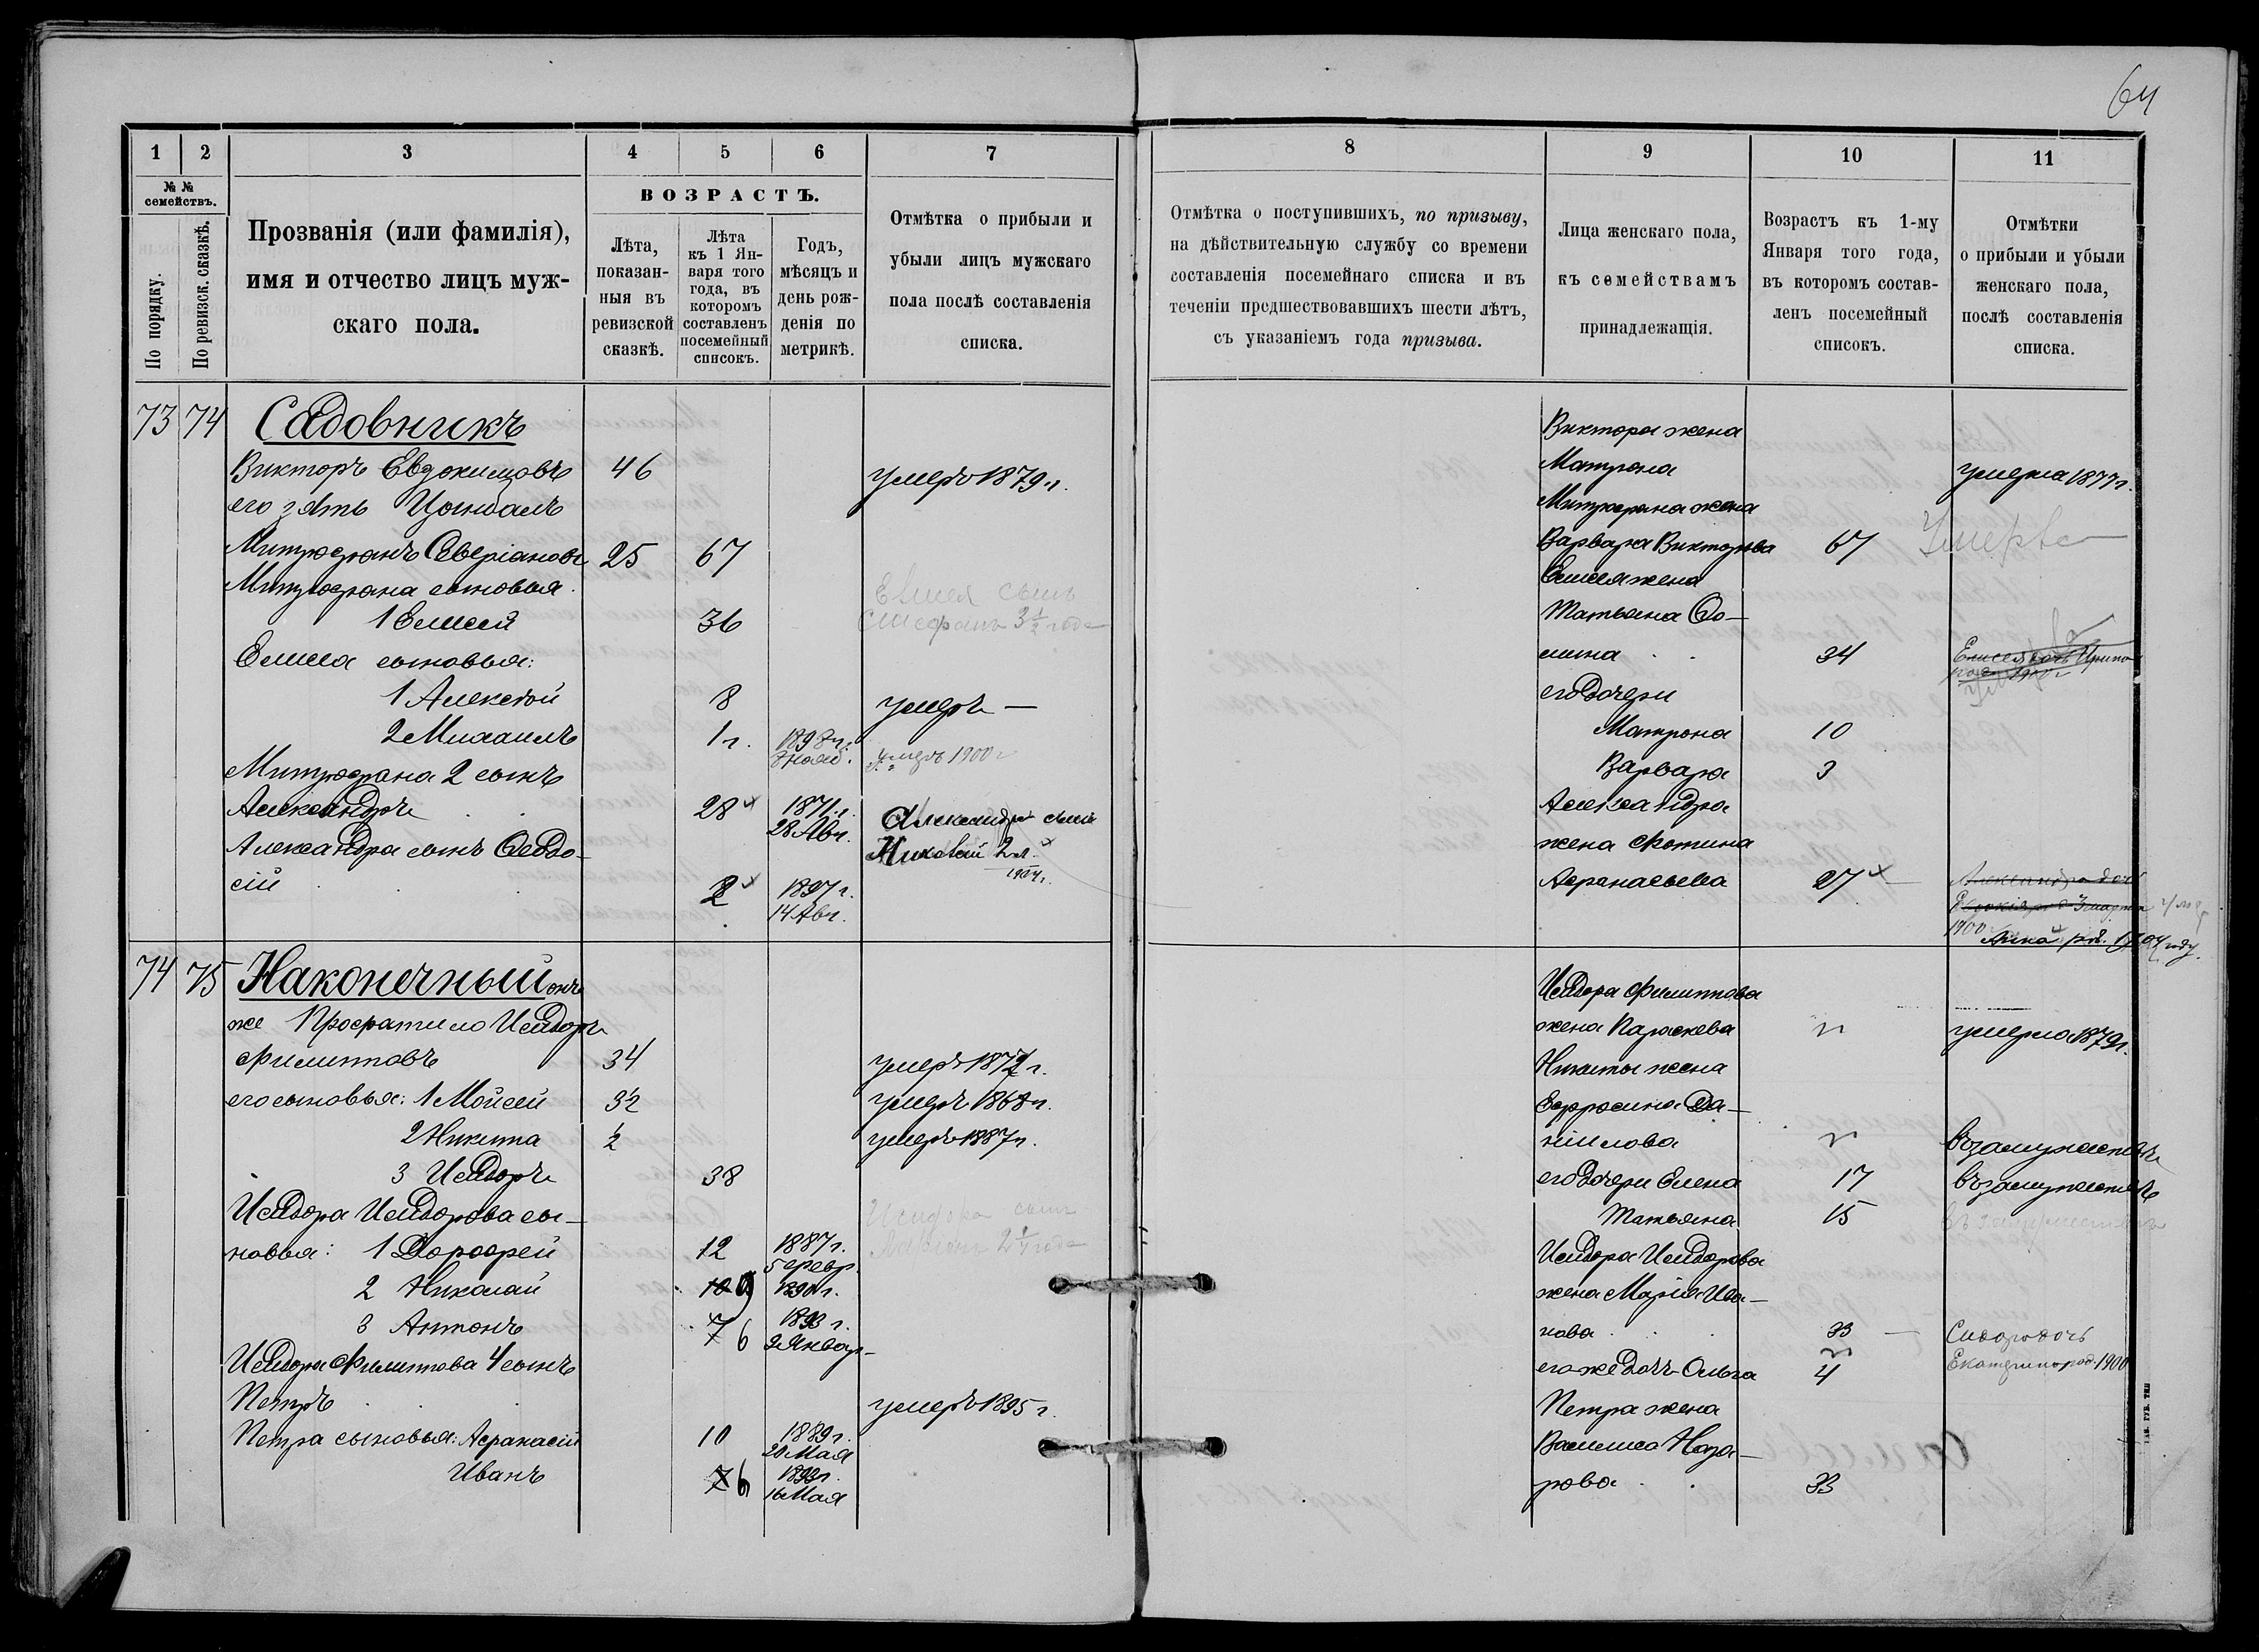 64
1
2
3
4
5
6
7
№ №
семействъ.
По порядку.
По ревизск. сказкѣ.
Прозванія (или фамилія),
имя и отчество лицъ муж-
скаго пола.
ВОЗРАСТЪ.
Лѣта,
показан-
ныя въ
ревизской
сказкѣ.
Лѣта
къ 1 Ян-
варя того
года, въ
которомъ
составленъ
посемейный
списокъ.
Годъ,
мѣсяцъ и
день рож-
денія по
метрикѣ.
Отмѣтка о прибыли и
убыли лицъ мужскаго
пола послѣ составленія
списка.
73 74 Садовникъ
Викторъ Евдокимовъ 46 умеръ 1879 г.
его зять Цымбалъ
Митрофанъ Северіановъ 25 67
Митрофана сыновья
1 Елисей 36
Елисея сынъ
Стефанъ 3 1/2 года
Елисея сыновья:
1 Алексѣй 8 умеръ —
2 Михаилъ 1 г. 1898 г. 8 нояб. умеръ 1900 г
Митрофана 2 сынъ
Александръ 28 1871 г. 28 Авг.
Александра сынъ
Николай 2 л.
1904 г.
Александра сынъ Ѳеодо-
сій 2 1897 г.
14 Авг.
74 75 Наконечный онъ
же Профатило Исидоръ
Филипповъ 34 умеръ 1872 г.
его сыновья: 1 Мойсей 3 1/2 умеръ 1868 г.
2 Никита 1/2 умеръ 1887 г.
3 Исидоръ 38
Исидора Исидорова сы-
новья: 1 Дорофей 12 1887 г.
5 февр.
Исидора сынъ
2 1/4 года
2 Николай 10 9 1890 г.
3 Антонъ 7 6 1893 г.
9 Январ.
Исидора Филиппова 4 сынъ
Петръ умеръ 1895 г.
Петра сыновья: Афанасій 10 1889 г.
20 Мая
Иванъ 7 6 1893 г.
16 Мая
8
9
10
11
Отмѣтка о поступившихъ, по призыву,
на дѣйствительную службу со времени
составленія посемейнаго списка и въ
теченіи предшествовавшихъ шести лѣтъ,
съ указаніемъ года призыва.
Лица женскаго пола,
къ семействамъ
принадлежащія.
Возрастъ къ 1-му
Января того года,
въ которомъ состав-
ленъ посемейный
списокъ.
Отмѣтки
о прибыли и убыли
женскаго пола,
послѣ составленія
списка.
Виктора жена
Матрона умерла 1877 г.
Митрофана жена
Варвара Викторова 67 Умерла
Елисея жена
Татьяна Ѳо-
мина 34 Елисея дочь Ирина
1900 г
его дочери
Матрона 10
Варвара 3
Александра
жена Фотина
Афанасьева 27 Александра дочь
1900
Анна род. 1904 году.
Исидора Филиппова
жена Параскева умерла 1879 г.
Никиты жена
Ефросинія Да-
нилова въ замужествѣ
его дочери Елена 17 въ замужествѣ
Татьяна 15 въ замужествѣ
Исидора Исидорова
жена Марія Ива-
нова 33 Сидора дочь
его же дочь Ольга 4 Екатерина род. 1900
Петра жена
Василиса Наза-
рова 33